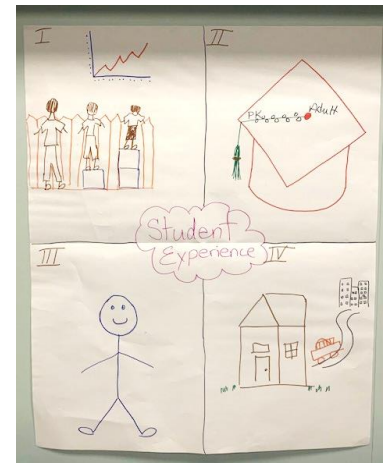 I
II
PK
Adult
Student
Experience
III
IV